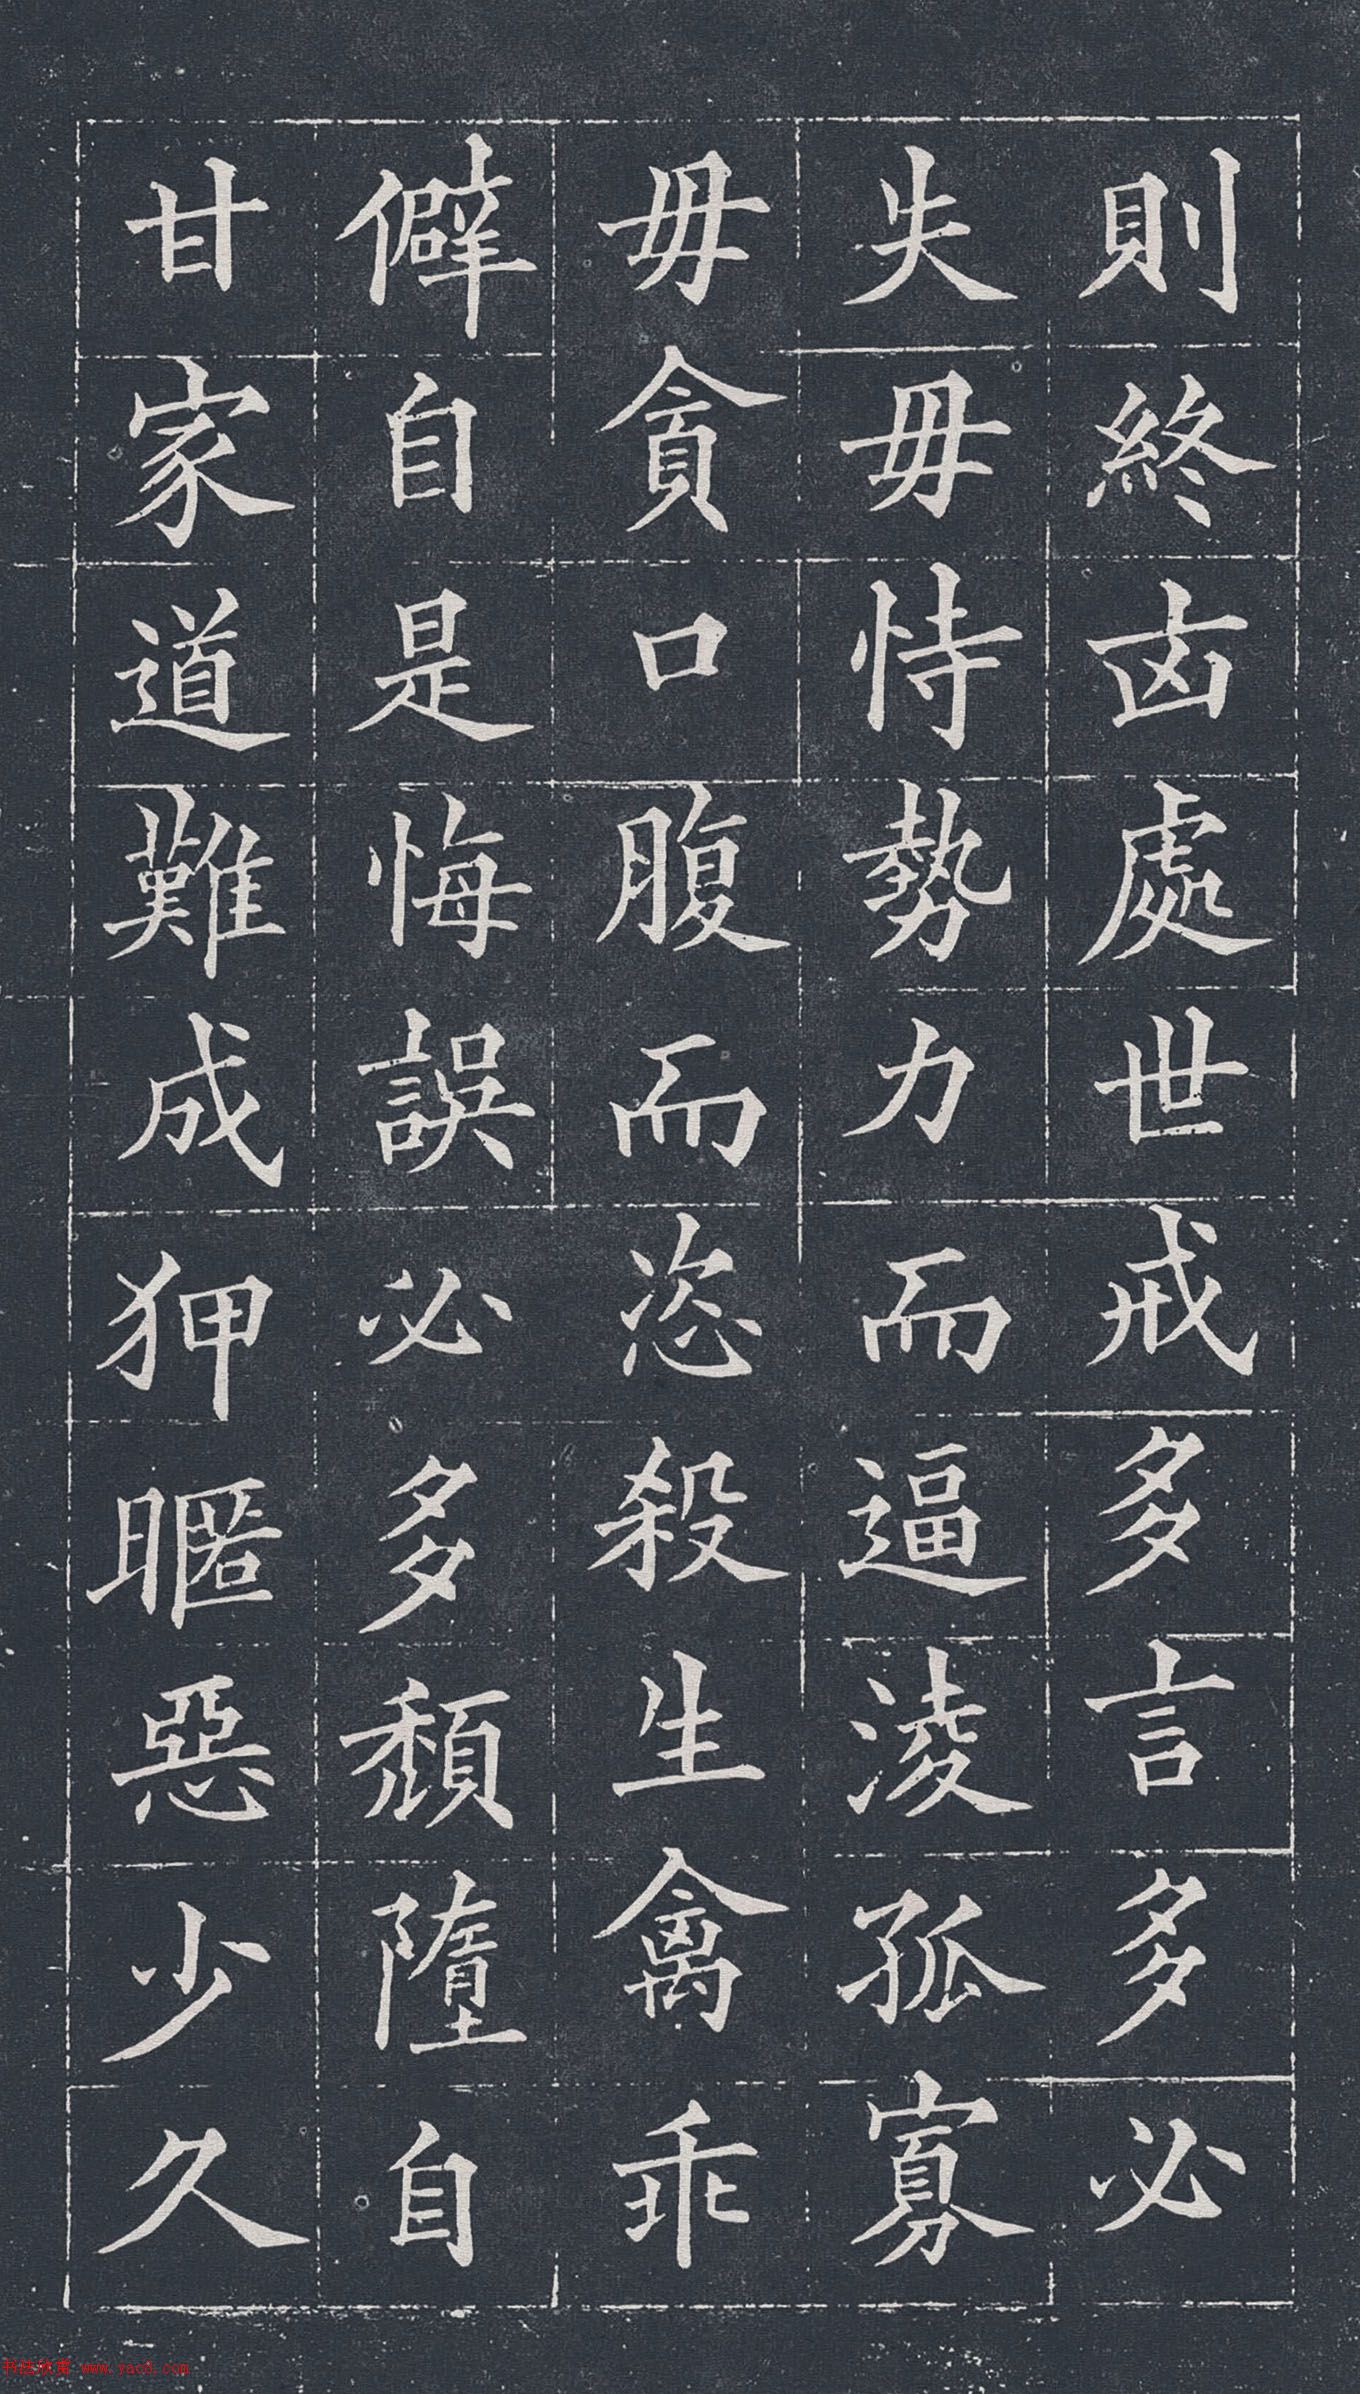 則終凶處世戒多言多必
失毋恃勢力而逼淩孤寡
毋貪口腹而恣殺生禽乖
僻自是悔誤必多頹隳自
甘家道難成狎暱惡少久
书法欣赏 www.yac8.com